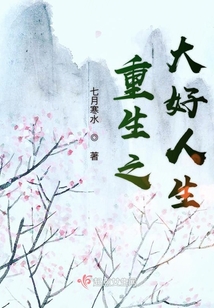 重生之
大好人生
七月寒水◎著